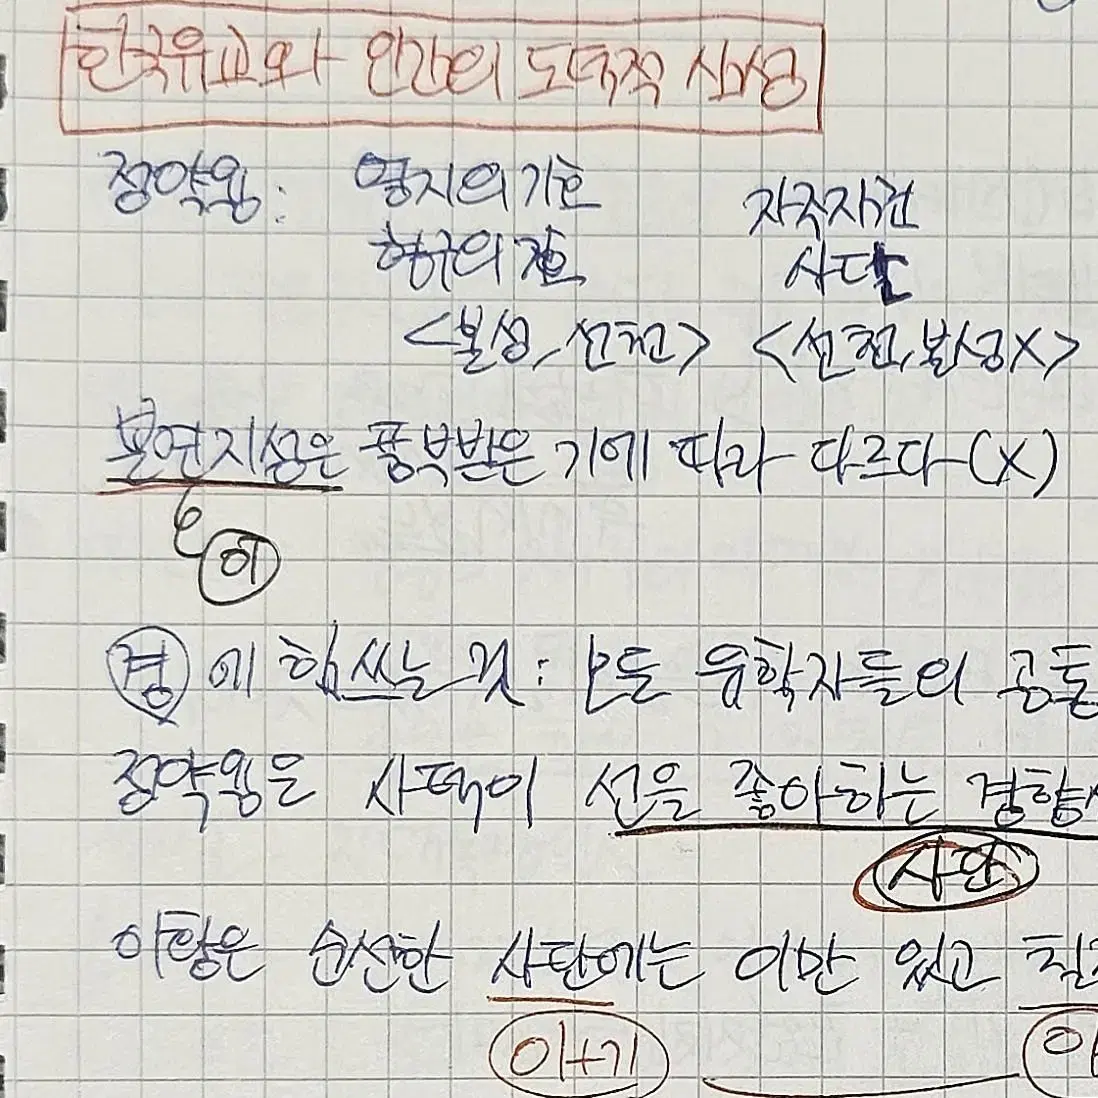 한국유교와 인간의 도덕적 심성
정약용: 영지의 기호 자주지권
형구의 기호 사덕
<본성, 선천> <선천, 본성X>
본연지성은 품부받은 기에 따라 다르다 (X)
이
경에 힘쓰는 것: 모든 유학자들의 공통
정약용은 사덕이 선을 좋아하는 경향
사단
이황은 순선한 사단에는 이만 있고
이+기